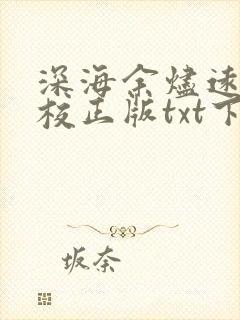 深海余烬速
校正版txt下
坂奈